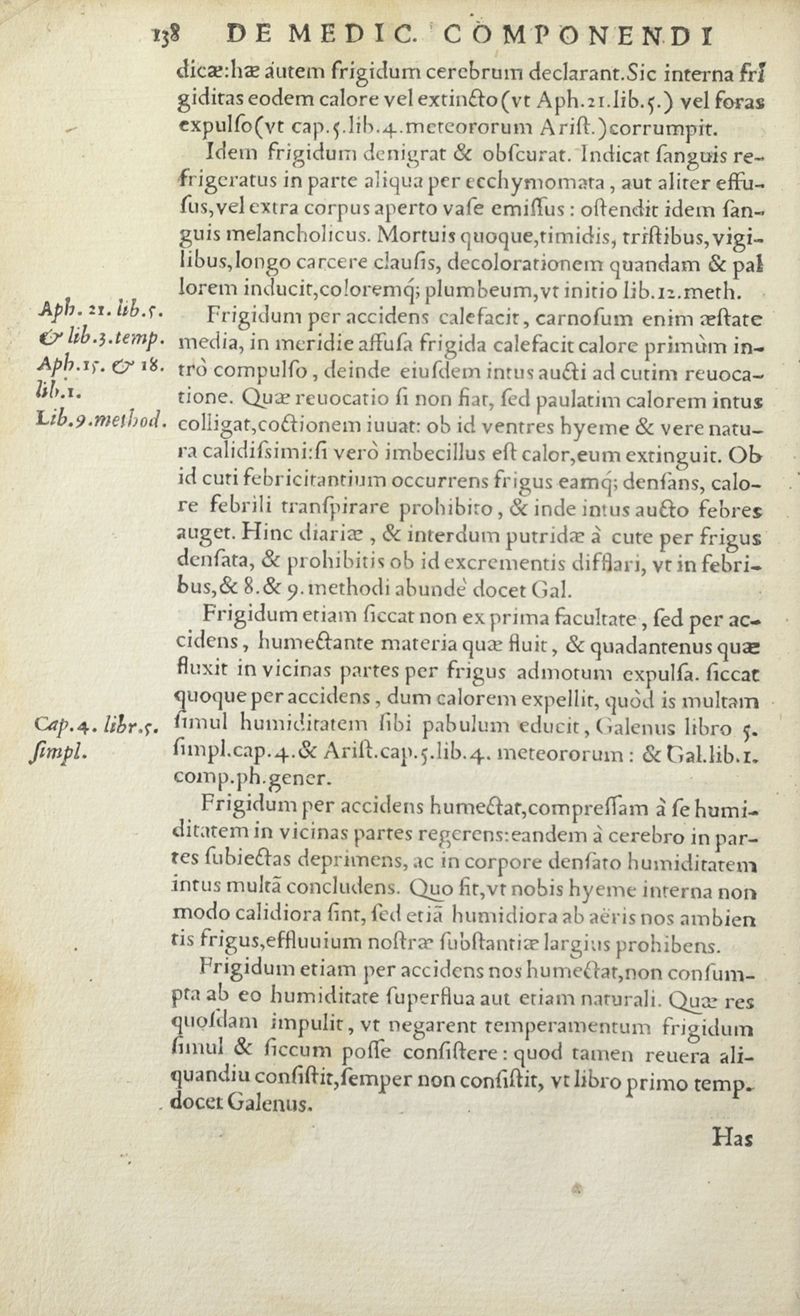 138 DE MEDIC. COMPONENDI
dicæ:hæ autem frigidum cerebrum declarant.Sic interna frī
giditas eodem calore vel extincto(vt Aph.21.lib.5.) vel foras
expulso(vt cap.5.lib.4.meteororum Arist.)corrumpit.
Idem frigidum denigrat & obscurat. Indicat sanguis re-
frigeratus in parte aliqua per ecchymomata, aut aliter effu-
sus,vel extra corpus aperto vase emissus: ostendit idem san-
guis melancholicus. Mortuis quoque,timidis, tristibus,vigi-
libus,longo carcere clausis, decolorationem quandam & pal
lorem inducit,coloremq; plumbeum,vt initio lib.12.meth.
Aph. 21. lib.5.
& lib.3.temp.
Aph.15. & 18.
lib.1.
Lib.9.method.
Frigidum per accidens calefacit, carnosum enim æstate
media, in meridie affusa frigida calefacit calore primùm in-
trò compulso, deinde eiusdem intus aucti ad cutim reuoca-
tione. Quæ reuocatio si non fiat, sed paulatim calorem intus
colligat,coctionem iuuat: ob id ventres hyeme & vere natu-
ra calidissimi:si verò imbecillus est calor,eum extinguit. Ob
id cuti febricitantium occurrens frigus eamq; densans, calo-
re febrili transpirare prohibito, & inde intus aucto febres
auget. Hinc diariæ, & interdum putridæ à cute per frigus
densata, & prohibitis ob id excrementis difflari, vt in febri-
bus,& 8.& 9.methodi abundè docet Gal.
Frigidum etiam siccat non ex prima facultate, sed per ac-
cidens, humectante materia quæ fluit, & quadantenus quæ
fluxit in vicinas partes per frigus admotum expulsa. siccat
quoque per accidens, dum calorem expellit, quòd is multam
Cap.4. libr.5.
simpl.
simul humiditatem sibi pabulum educit, Galenus libro 5.
simpl.cap.4.& Arist.cap.5.lib.4. meteororum: & Gal.lib.1.
comp.ph.gener.
Frigidum per accidens humectat,compressam à se humi-
ditatem in vicinas partes regerens:eandem à cerebro in par-
tes subiectas deprimens, ac in corpore densato humiditatem
intus multā concludens. Quo fit,vt nobis hyeme interna non
modo calidiora sint, sed etiā humidiora ab aëris nos ambien
tis frigus,effluuium nostræ substantiæ largius prohibens.
Frigidum etiam per accidens nos humectat,non consum-
pta ab eo humiditate superflua aut etiam naturali. Quæ res
quosdam impulit, vt negarent temperamentum frigidum
simul & siccum posse consistere: quod tamen reuera ali-
quandiu consistit,semper non consistit, vt libro primo temp.
docet Galenus.
Has